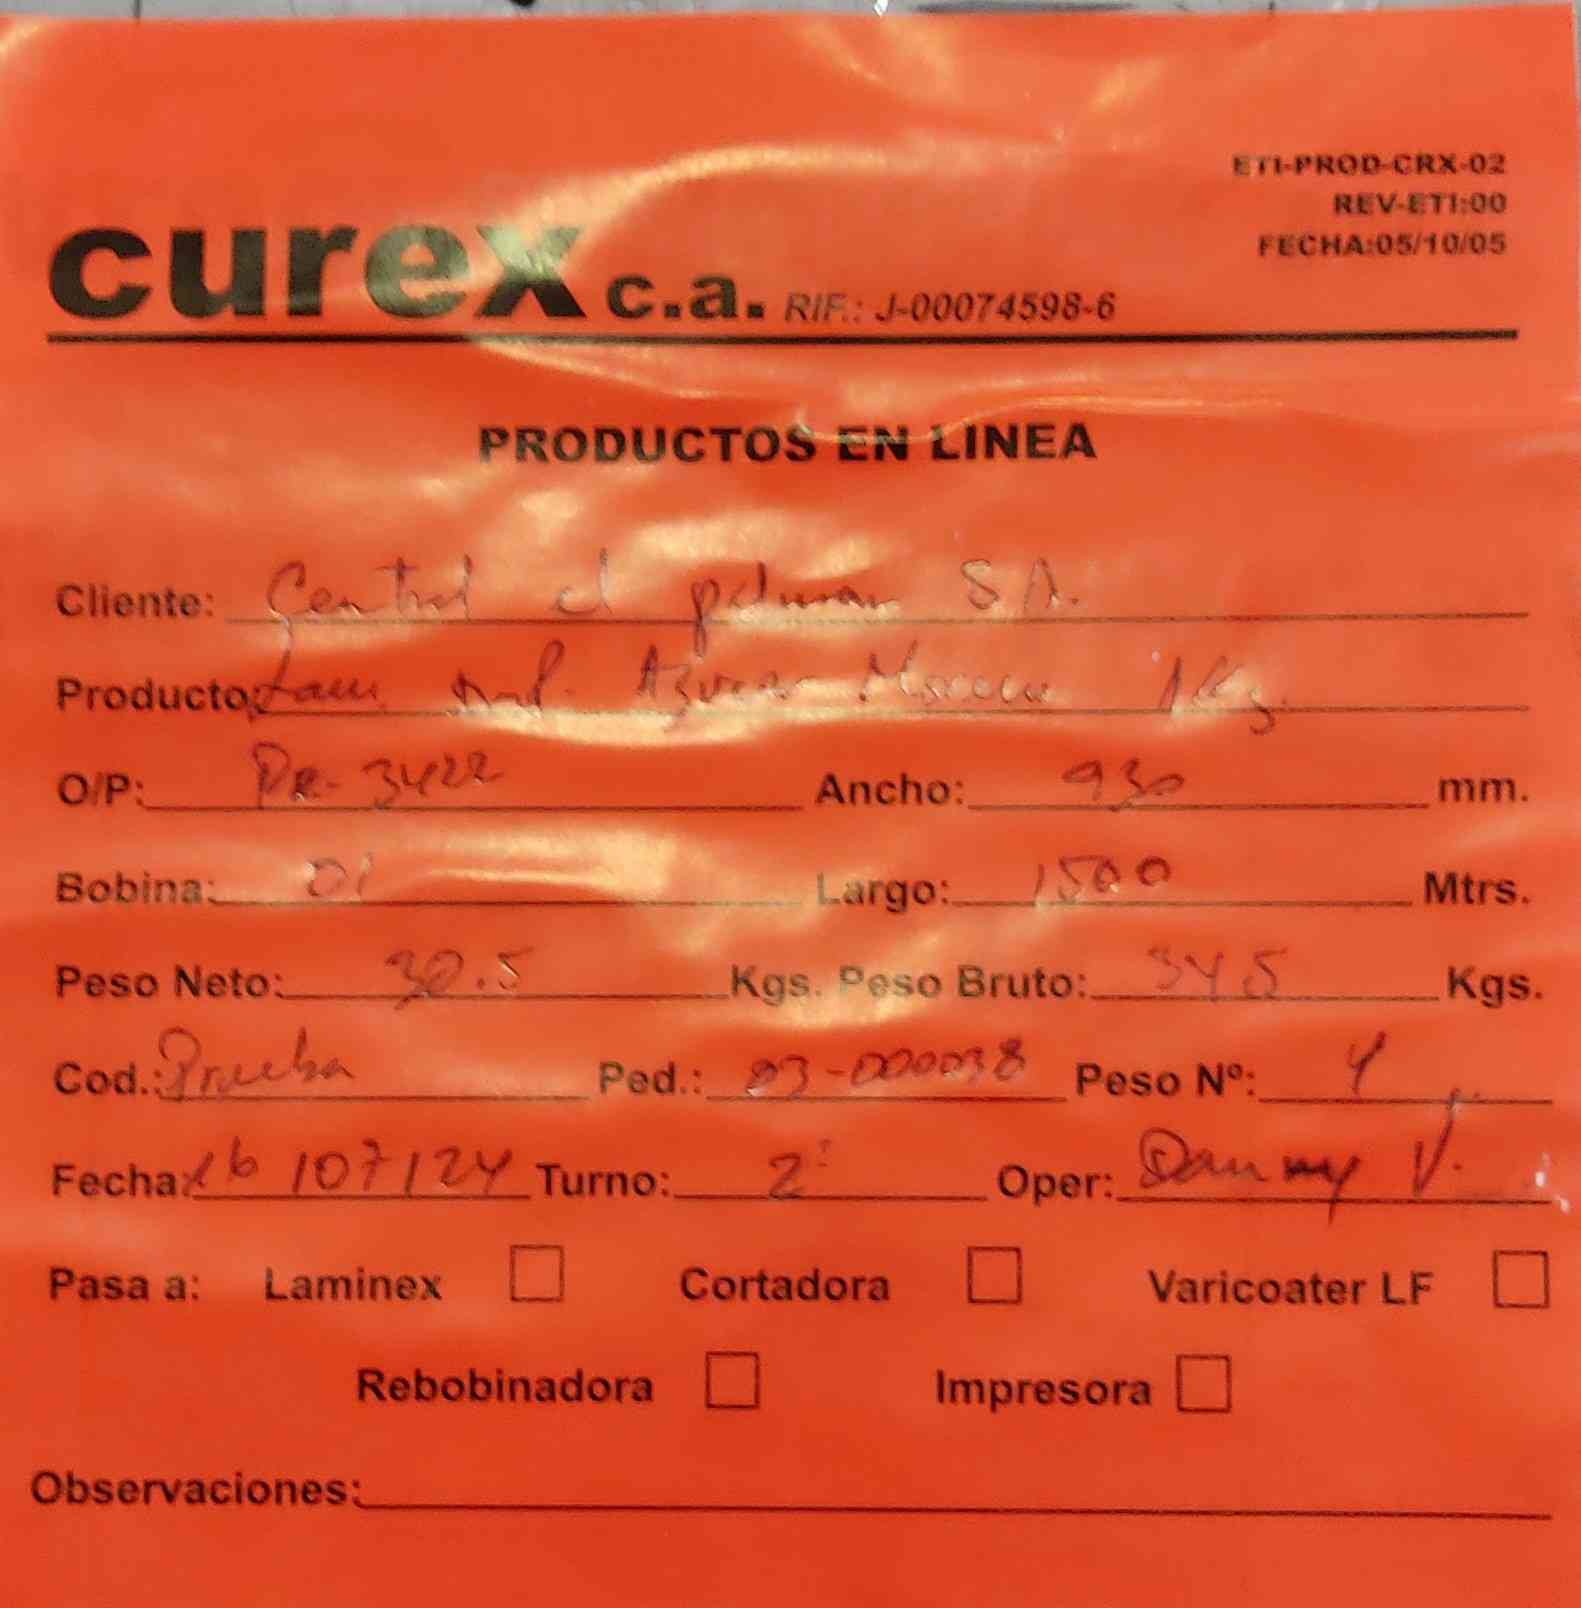 ETI-PROD-CRX-02
REV-ETI:00
FECHA:05/10/05
curex c.a. RIF.: J-00074598-6
PRODUCTOS EN LINEA
Cliente: Central el palmar S.A.
Producto: Lam Azucar Morena 1Kg.
O/P: PR-3422 Ancho: 930 mm.
Bobina: 01 Largo: 1500 Mtrs.
Peso Neto: 30.5 Kgs. Peso Bruto: 345 Kgs.
Cod.: Prueba Ped.: 03-000038 Peso Nº: 4
Fecha: 16/07/24 Turno: 2º Oper: Danny V.
Pasa a: Laminex Cortadora Varicoater LF
Rebobinadora Impresora
Observaciones: